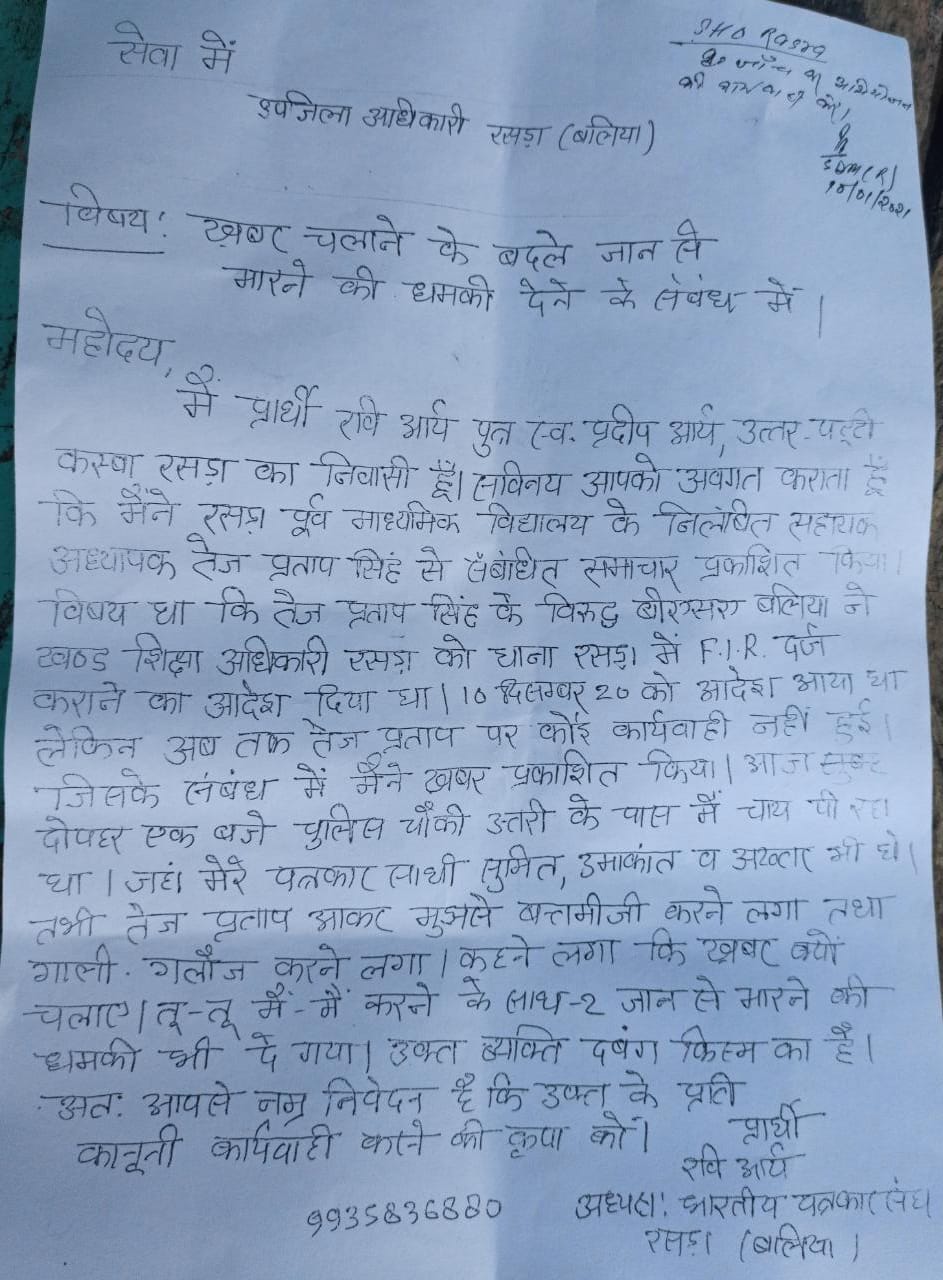 SHO Rasra
कृ० जाँच कर अभियोजन
की कार्यवाही करें।
SDM(R)
10/01/2021
सेवा में
उपजिला अधिकारी रसड़ा (बलिया)
विषय: खबर चलाने के बदले जान से
मारने की धमकी देने के संबंध में।
महोदय,
मैं प्रार्थी रवि आर्य पुत्र स्व. प्रदीप आर्य, उत्तर-पट्टी
कस्बा रसड़ा का निवासी हूँ। सविनय आपको अवगत कराता हूँ
कि मैंने रसड़ा पूर्व माध्यमिक विद्यालय के निलंबित सहायक
अध्यापक तेज प्रताप सिंह से संबंधित समाचार प्रकाशित किया।
विषय था कि तेज प्रताप सिंह के विरुद्ध बीएसए बलिया ने
खण्ड शिक्षा अधिकारी रसड़ा को थाना रसड़ा में F.I.R. दर्ज
कराने का आदेश दिया था। 10 दिसम्बर 20 को आदेश आया था
लेकिन अब तक तेज प्रताप पर कोई कार्यवाही नहीं हुई।
जिसके संबंध में मैंने खबर प्रकाशित किया। आज
दोपहर एक बजे पुलिस चौकी उत्तरी के पास मैं चाय पी रहा
था। जहां मेरे पत्रकार साथी सुमित, उमाकांत व अख्तार भी थे।
तभी तेज प्रताप आकर मुझसे बत्तमीजी करने लगा तथा
गाली-गलौज करने लगा। कहने लगा कि खबर क्यों
चलाए। तू-तू मैं-मैं करने के साथ-2 जान से मारने की
धमकी भी दे गया। उक्त व्यक्ति दबंग किस्म का है।
अत: आपसे नम्र निवेदन है कि उक्त के प्रति
कानूनी कार्यवाही करने की कृपा करें।
प्रार्थी
रवि आर्य
9935836880 अध्यक्ष: भारतीय पत्रकार संघ
रसड़ा (बलिया)